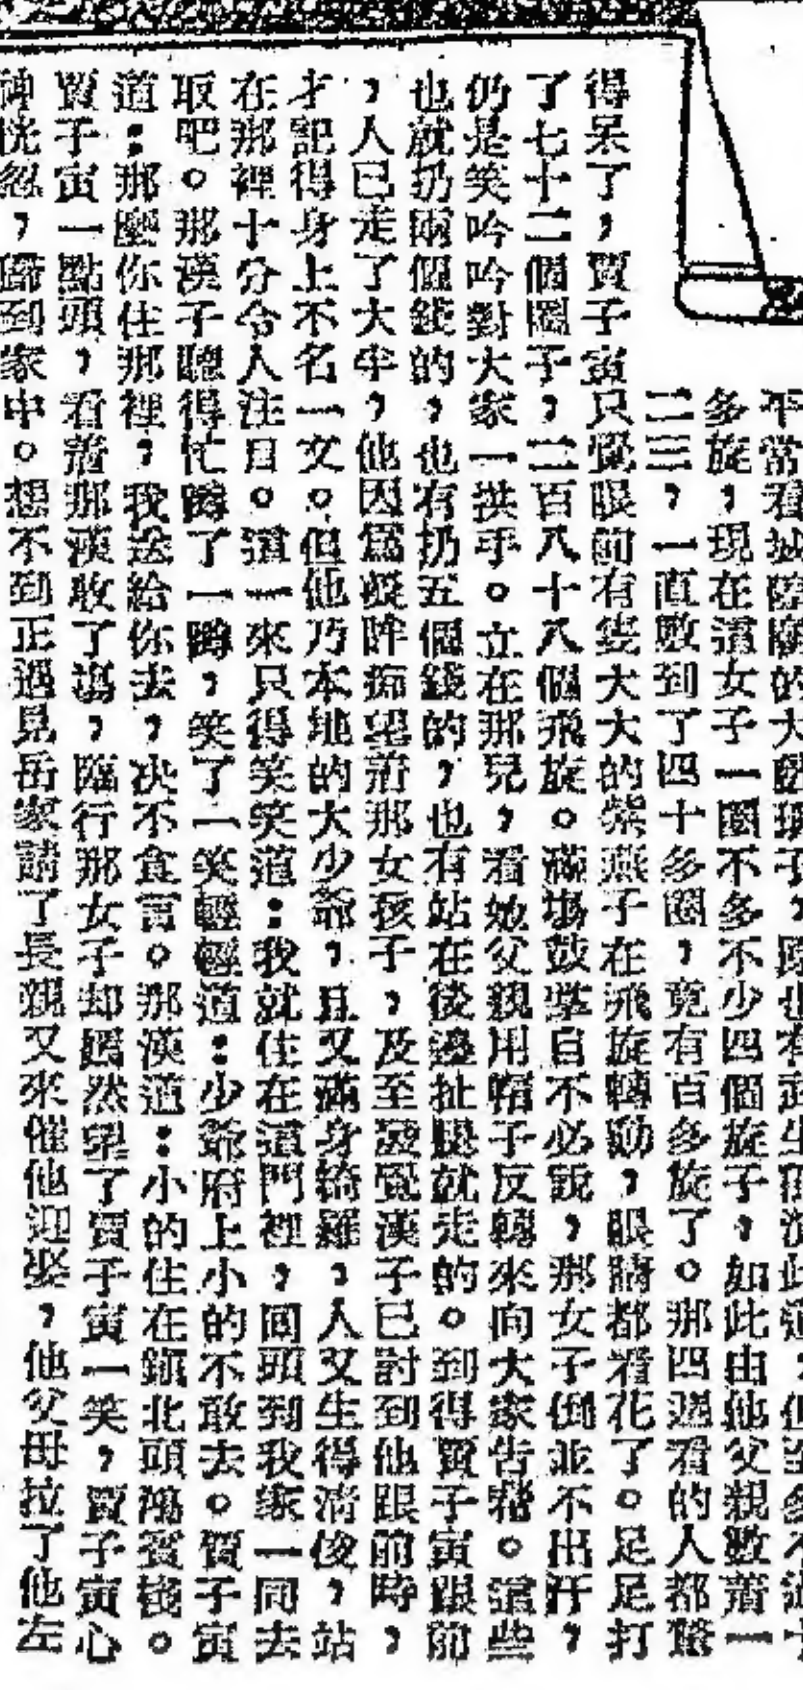 平常看城隍廟的大戲班子，跟也有武生
多旋，現在這女子一圈不多不少四個旋子，如此由他父親數着一
二三，一直數到了四十多圈，竟有百多旋了。那四週看的人都
得呆了，賈子寅只覺眼前有隻大大的紫燕子在飛旋轉動，眼睛都看花了。足足打
了七十二個圈子，二百八十八個飛旋。滿場鼓掌自不必說，那女子倒並不出汗，
仍是笑吟吟對大家一拱手。立在那兒，看她父親用帽子反轉來向大家告幫。這些
也就扔兩個錢的，也有扔五個錢的，也有站在後邊扯腿就走的。到得賈子寅跟前
，人已走了大半，他因爲凝眸痴望着那女孩子，及至發覺漢子已討到他跟前時，
才記得身上不名一文。但他乃本地的大少爺，且又滿身綺羅，人又生得清俊，站
在那裡十分令人注目。這一來只得笑笑道：我就住在這門裡，回頭到我家一同去
取吧。那漢子聽得忙躊了一躊，笑了一笑輕輕道：少爺府上小的不敢去。賈子寅
道：那麼你住那裡，我送給你去，决不食言。那漢道：小的住在鎮北頭鴻賓棧。
賈子寅一點頭，看着那漢收了場，臨行那女子却嫣然望了賈子寅一笑，賈子寅心
神恍忽，歸到家中。想不到正遇見岳家請了長親又來催他迎娶，他父母拉了他左